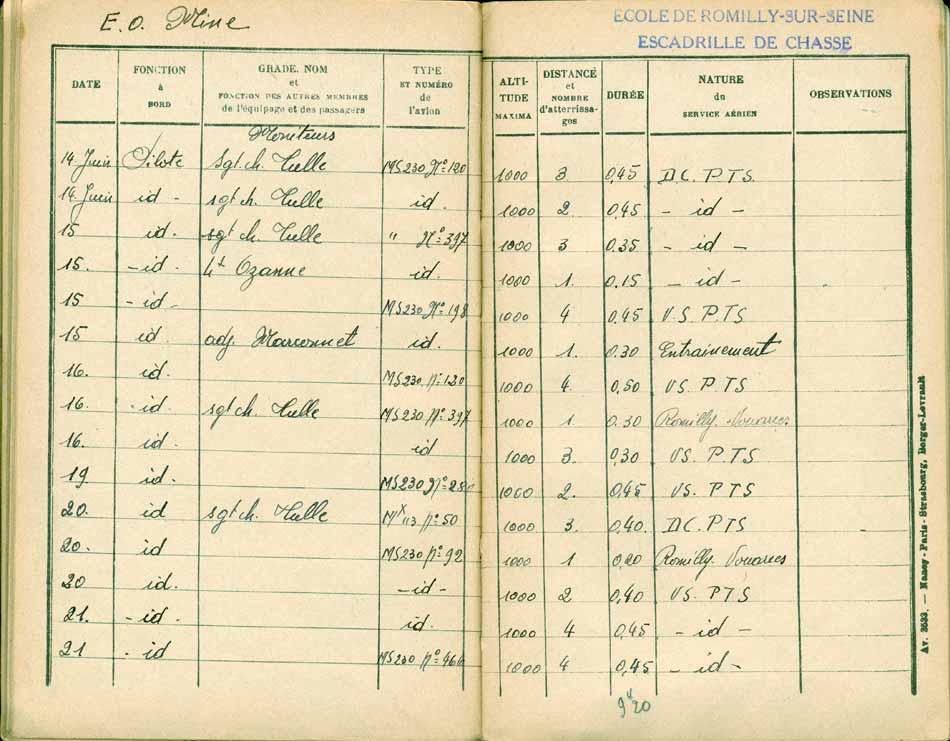 E.O. Mine
ECOLE DE ROMILLY-SUR-SEINE
ESCADRILLE DE CHASSE
DATE FONCTION à BORD GRADE. NOM et FONCTION DES AUTRES MEMBRES de l'équipage et des passagers TYPE ET NUMÉRO de l'avion ALTITUDE MAXIMA DISTANCE et NOMBRE d'atterrissages DURÉE NATURE du SERVICE AÉRIEN OBSERVATIONS
Moniteurs
14 Juin Pilote Sgt ch. Tulle MS230 N°=120 1000 3 0,45 D.C. P.T.S.
14 Juin id - sgt ch. Tulle id. 1000 2 0,45 - id -
15 id. sgt ch. Tulle " N°=397 1000 3 0.35 - id -
15. - id. Lt Ozanne id. 1000 1. 0.15 - id -
15 - id - MS230 N°=198 1000 4 0,45 V.S. P.T.S
15 id. adj. Marconnet id. 1000 1. 0.30 Entrainement
16. id. MS230. n°=120 1000 4. 0,50 VS. P.TS
16. - id. sgt ch. Tulle MS230. n°=397 1000 1 0.30 Romilly. Vouarces
16. id. id 1000 3. 0,30 VS. P.TS
19 id. MS230 N°= 1000 2. 0,45 VS. P.TS
20. id sgt ch. Tulle MX113. n°=50 1000 3. 0,40. D.C. P.TS
20. id MS230 n°=92 1000 1 0,20 Romilly. Vouarces
20 id. - id - 1000 2 0,40 VS. P.T.S
21. - id. id. 1000 4 0,45 - id -
21 - id MS230 n°=466 1000 4 0,45 - id -
9h20
Av. 3533. — Nancy-Paris-Strasbourg, Berger-Levrault